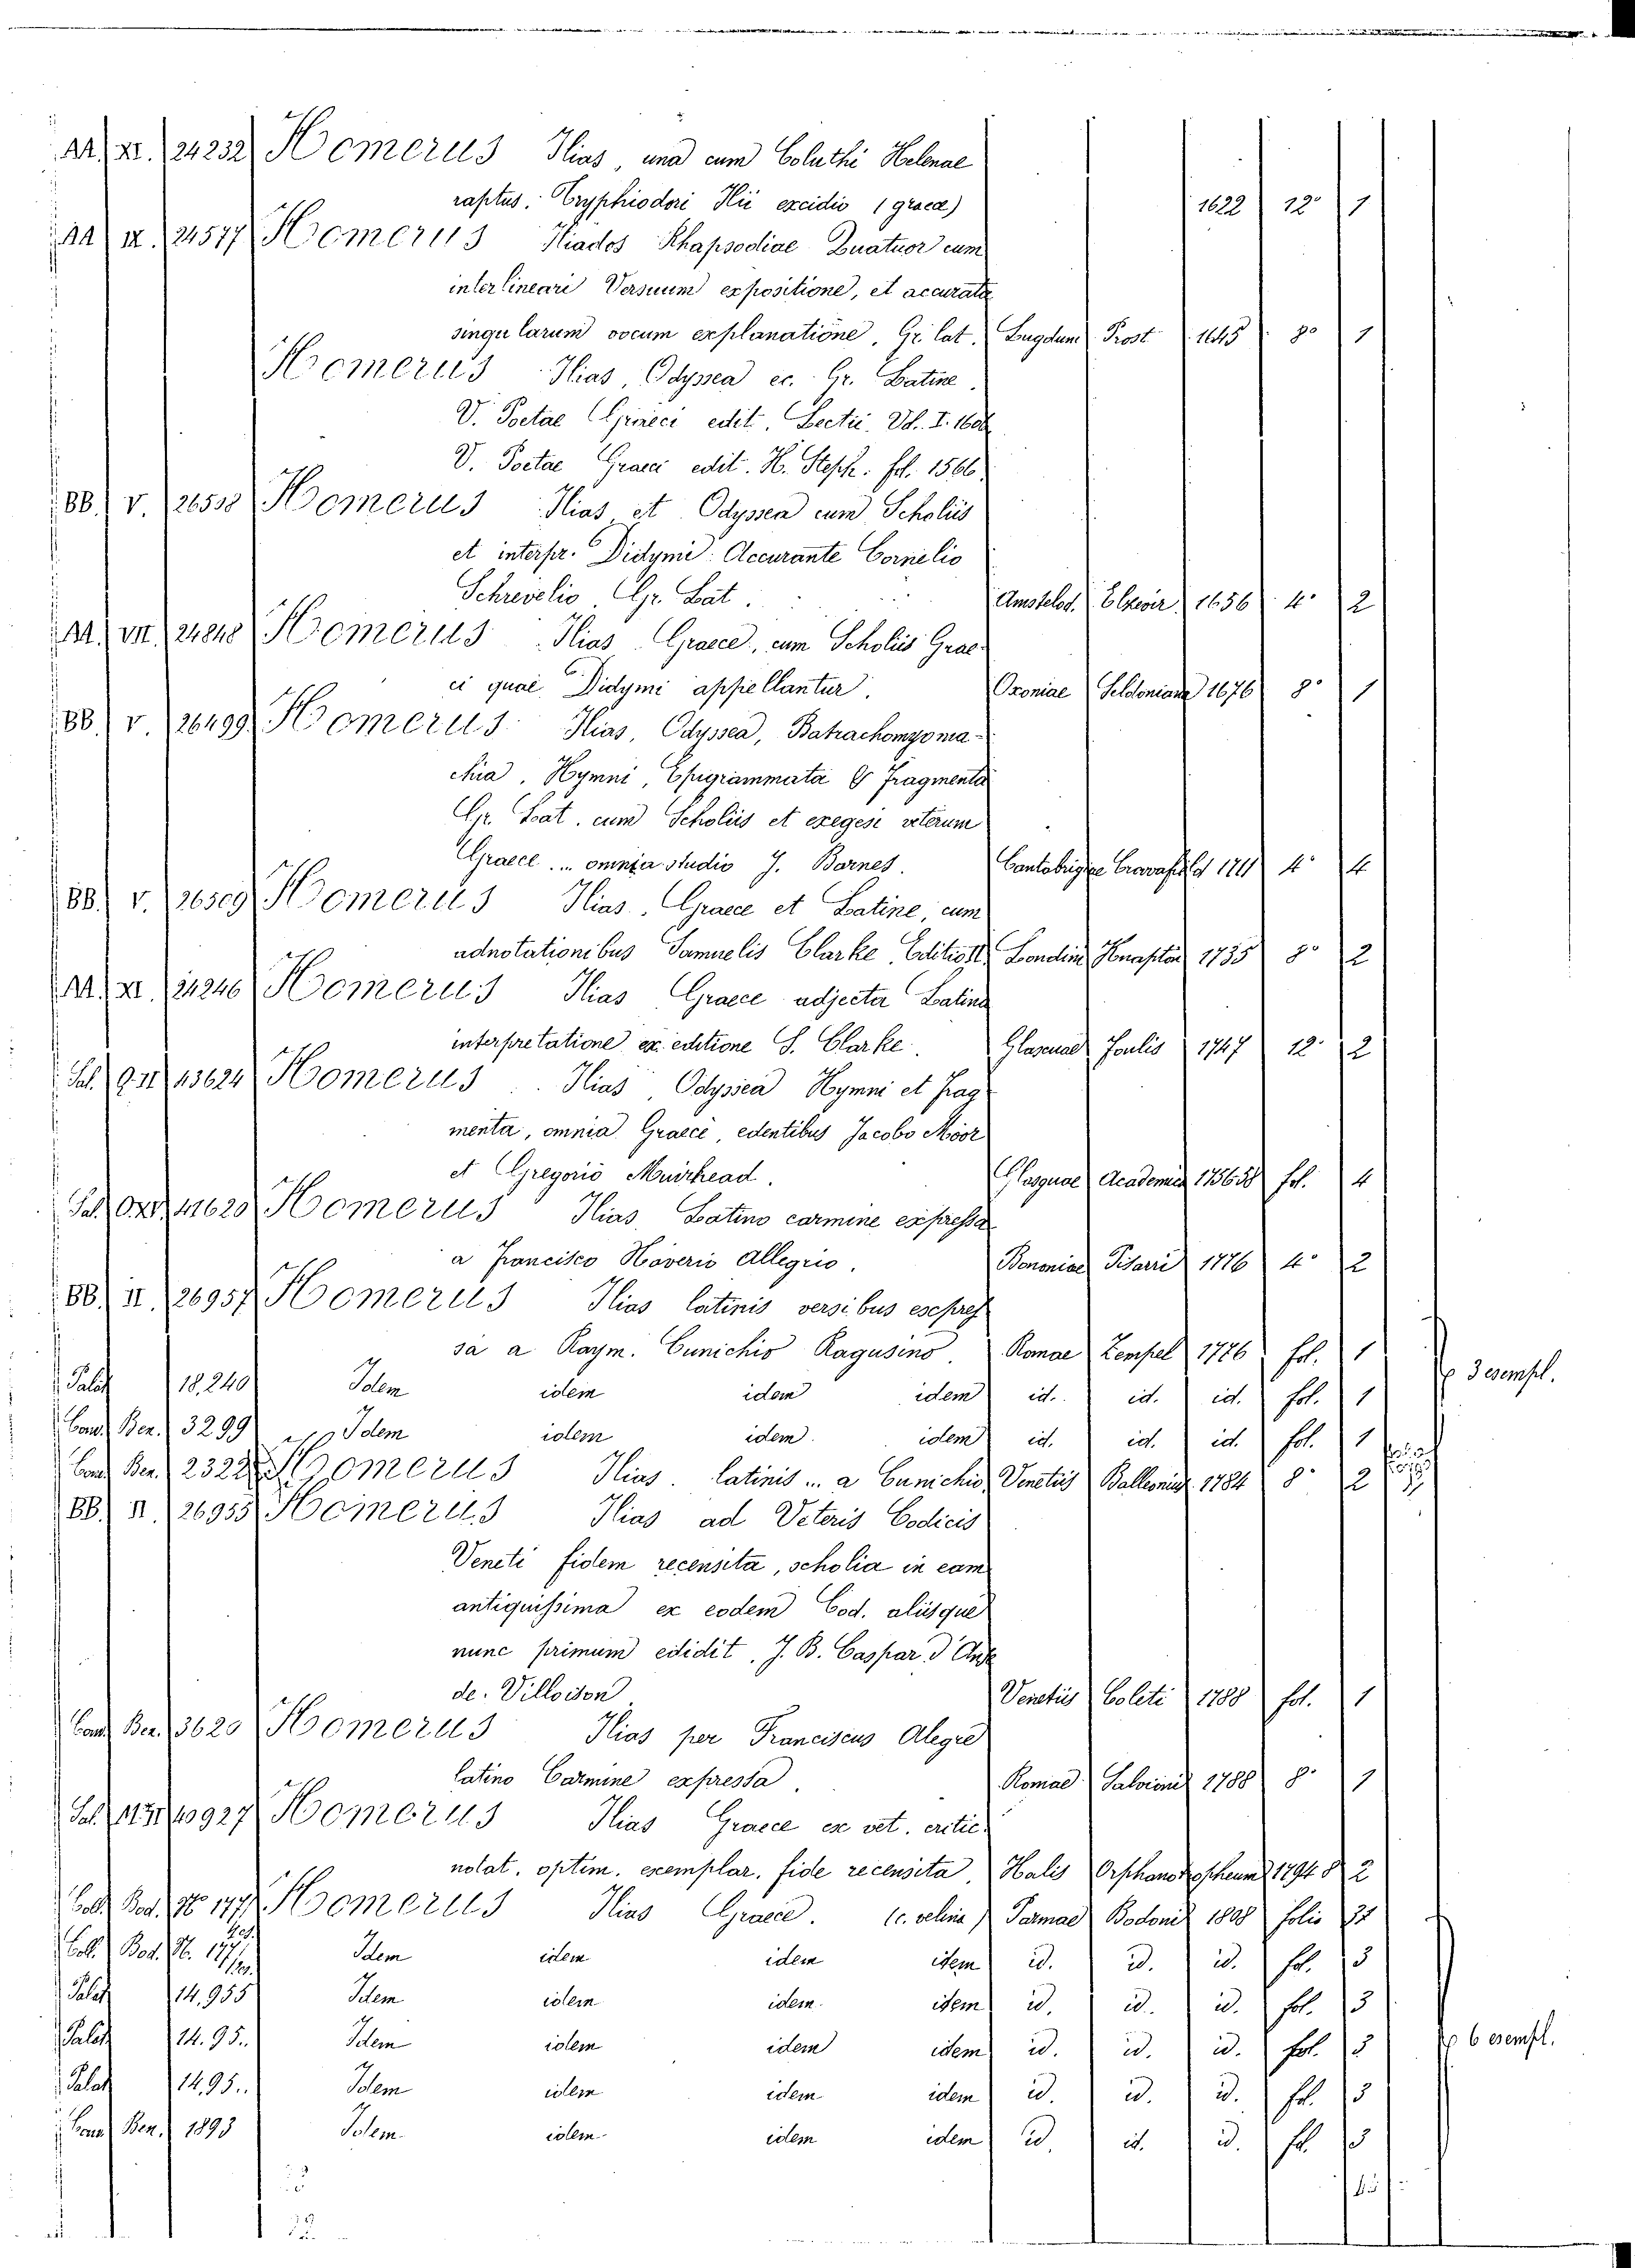 AA. XI. 24232 Homerus Ilias, una cum Coluthi Helenae
raptus. Tryphiodori Ilii excidio (graece) 1622 12° 1
AA IX. 24577 Homerus Iliados Rhapsodiae Quatuor cum
interlineari Versuum expositione, et accurata
singularum vocum explanatione, Gr. lat. Lugduni Prost 1645 8° 1
Homerus Ilias, Odyssea ec. Gr. Latine.
V. Poetae Graeci edit. Lectii. Vol. I. 1606
V. Poetae Graeci edit. H. Steph. fol. 1566
BB. V. 26538 Homerus Ilias et Odyssea cum Scholiis
et interpr. Didymi. Accurante Cornelio
Schrevelio, Gr. Lat. Amstelod. Elzevir 1656 4° 2
AA. VII. 24848 Homerus Ilias Graece, cum Scholiis Grae-
ci quae Didymi appellantur. Oxoniae Seldoniana 1676 8° 1
BB. V. 26499 Homerus Ilias, Odyssea, Batrachomyoma-
chia, Hymni, Epigrammata & fragmenta
Gr. Lat. cum Scholiis et exegesi veterum
Graece ... omnia studio J. Barnes. Cantabrigiae 1711 4° 4
BB. V. 26509 Homerus Ilias, Graece et Latine, cum
adnotationibus Samuelis Clarke, Editio II. Londini Knapton 1735 8° 2
AA. XI. 24246 Homerus Ilias Graece adjecta Latina
interpretatione ex editione S. Clarke. Glascuae Foulis 1747 12° 2
Sal. 9. II 43624 Homerus Ilias, Odyssea Hymni et Frag
menta, omnia Graece, edentibus Jacobo Moor
et Gregorio Muirhead. Glasguae Academic 175658 fol. 4
Sal. 41620 Homerus Ilias Latino carmine expressa
a Francisco Haverio Allegrio. Bononiae Pisarri 1776 4° 2
BB. II. 26957 Homerus Ilias latinis versibus expres
sa a Raym. Cunichio Ragusino. Romae Zempel 1776 fol. 1
Palat 18.240 Idem idem idem idem id. id. id. fol. 1 3 esempl.
Cam. Ben. 3299 Idem idem idem idem id. id. id. fol. 1
Cam. Ben. 2322 Homerus Ilias. latinis ... a Cunichio, Venetiis Balleoniis 1784 8° 2
BB. II. 26955 Homerus Ilias ad Veteris Codicis
Veneti fidem recensita, scholia in eam
antiquissima ex eodem Cod. aliisque
nunc primum edidit, J. B. Caspar d'Anse
de Villoison Venetiis Coleti 1788 fol. 1
Cam. Ben. 3620 Homerus Ilias per Franciscus Alegre
latino Carmine expressa. Romae Salvioni 1788 8° 1
Sal. 40927 Homerus Ilias Graece ex vet. critic.
notat. optim. exemplar. fide recensita. Halis Orphanotropheum 1794 8 2
Coll. Bod. N° 177 Homerus Ilias Graece. (c. velina) Parmae Bodoni 1808 folio 3
Coll. Bod. N. 177 Idem idem idem idem id. id. id. fol. 3
Palat 14.955 Idem idem idem idem id. id. id. fol. 3
Palat 14.95.. Idem idem idem idem id. id. id. fol. 3 6 esempl.
Palat 14.95.. Idem idem idem idem id. id. id. fol. 3
Cam. Ben. 1893 Idem idem idem idem id. id. id. fol. 3